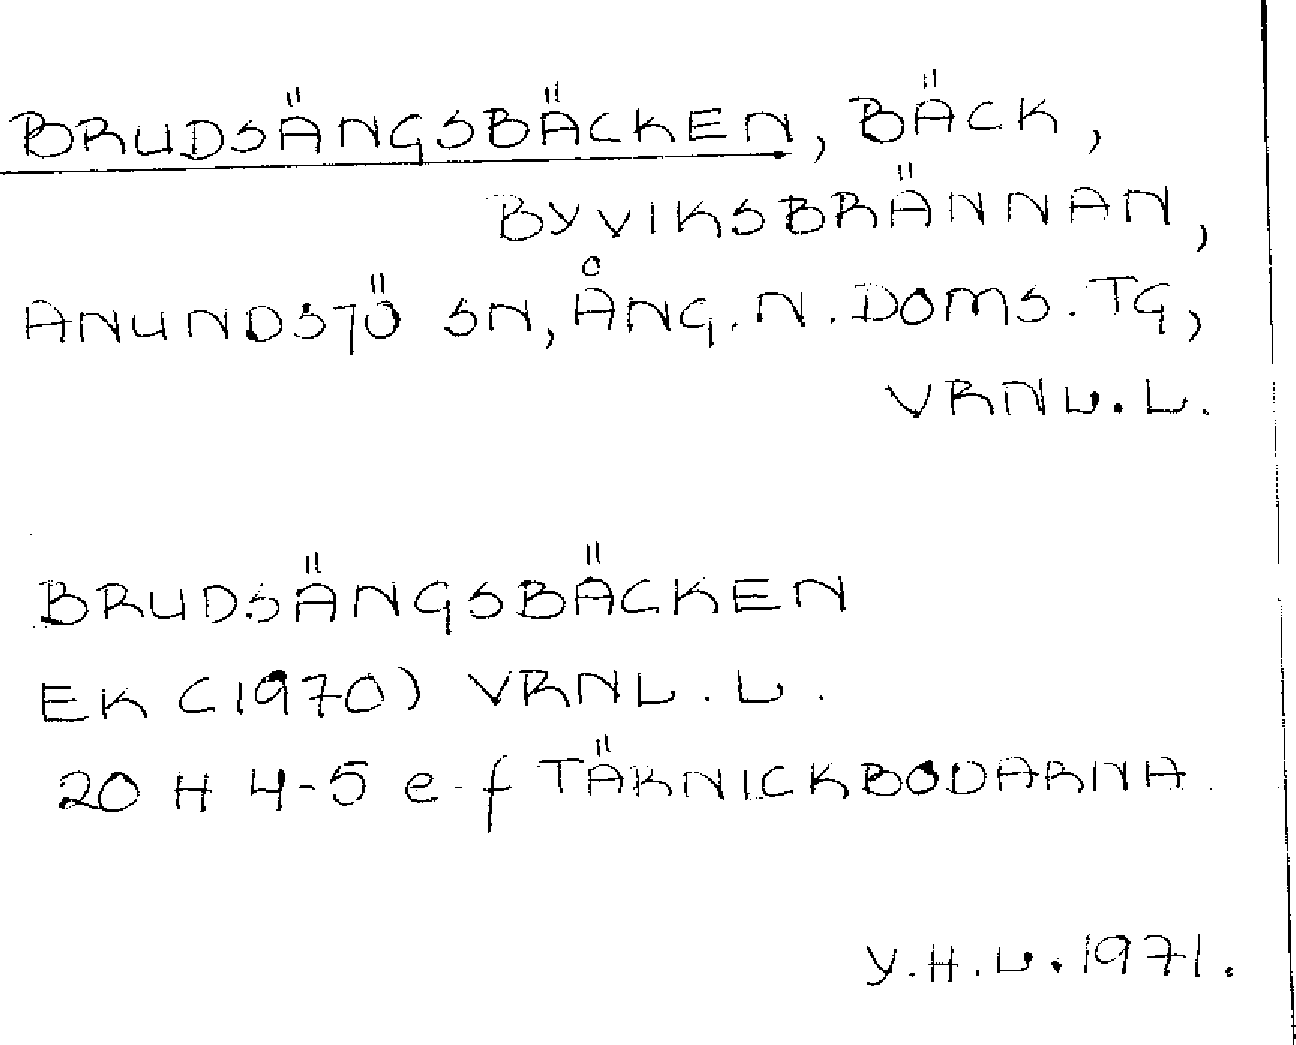 BRUDSÄNGSBÄCKEN, BÄCK,
BYVIKSBRÄNNAN,
ANUNDSJÖ SN, ÅNG. N. DOMS. TG,
VRNL. L.
BRUDSÄNGSBÄCKEN
EK (1970) VRNL. L.
20 H 4-5 e-f TÄRNICKBODARNA.
Y. H. L. 1971.